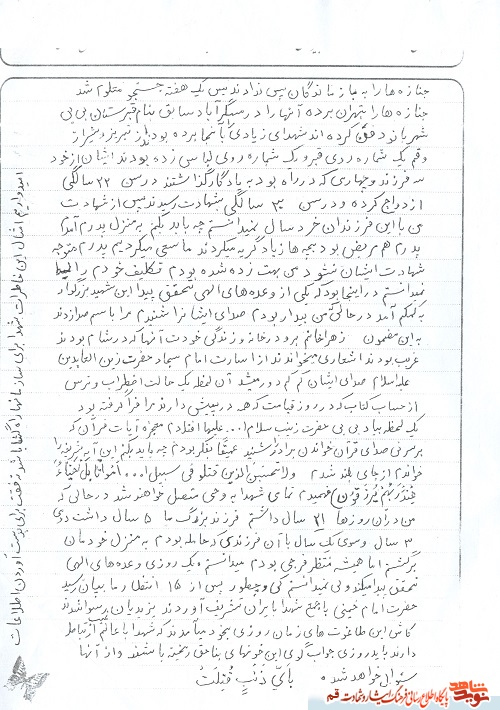 جنازه ها را به بازماندگان پس ندادند پس یک هفته جستجو معلوم شد
جنازه ها را بتهران برده آنها را در مسگرآباد سابق بنام قبرستان بی بی
شهربانو دفن کرده اند شهدای زیادی را بآنجا برده بودند از تبریز و شیراز
و قم یک شماره روی قبر و یک شماره روی لباس زده بودند ایشان از خود
سه فرزند و چهاری که در راه بود به یادگار گذاشتند در سن ۲۲ سالگی
ازدواج کرده و در سن ۳۰ سالگی بشهادت رسیدند پس از شهادت
من با این فرزندان خردسال نمیدانستم چه باید بکنم به منزل پدرم آمدم
پدرم هم مریض بود بچه ها زیاد گریه میکردند ما سعی میکردیم پدرم متوجه
شهادت ایشان نشود من بهت زده شده بودم تکلیف خودم را
نمیدانستم در اینجا بود که یکی از وعده های الهی تحقق پیدا این شهید بزرگوار
به کمکم آمد در حالی که من بیدار بودم صدای ایشان را شنیدم مرا با اسم صدا زدند
به این مضمون زهرا خانم برو در خانه و زندگی خودت آنها که در شام بودند
غریب بودند اشعاری میخواندند از اسارت امام سجاد حضرت زین العابدین
علیه السلام صدای ایشان کم کم دور میشد آن لحظه یک حالت اضطراب و ترس
از حساب کتاب که در روز قیامت که همه در پیش دارند مرا فرا گرفته بود
یک لحظه بیاد بی بی حضرت زینب سلام ا... علیها افتادم معجزه آیات قرآن که
بر سر نی صدای قرآن خواندن برادر شنید عمیقاً بفکر بودم چه باید بکنم این آیه شریفه را
خواندم از جای بلند شدم ولا تحسبن الذین قتلو فی سبیل ا... امواتا بل احیاء
عند ربهم یرزقون فهمیدم تمامی شهدا به وحی متصل خواهند شد در حالی که
من در آن روزها ۲۱ سال داشتم فرزند بزرگ ما ۵ سال داشت دومی
۳ سال و سومی یک سال با آن فرزندی که حامله بودم به منزل خودمان
برگشتم اما همیشه منتظر فرجی بودم میدانستم که یک روزی وعده های الهی
تحقق پیدا میکند ولی نمیدانستم کی و چطور پس از ۱۵ انتظار ما بپایان رسید
حضرت امام خمینی با جمع شهدا بایران تشریف آوردند یزیدیان رسوا شدند
کاش این طاغوت های زمان روزی بخود میآمدند که شهدا با عالم غیب ارتباط
دارند باید روزی جواب گوی این خونهای بناحق ریخته باشند و از آنها
سئوال خواهد شد بأی ذنب قتلت
امیدواریم امثال این خاطرات شهدا برای سازمانها راه گشا باشد نه فقط برای بدست آوردن اطلاعات
شاهد
نوید
پایگاه اطلاع رسانی فرهنگ ایثار و شهادت قم